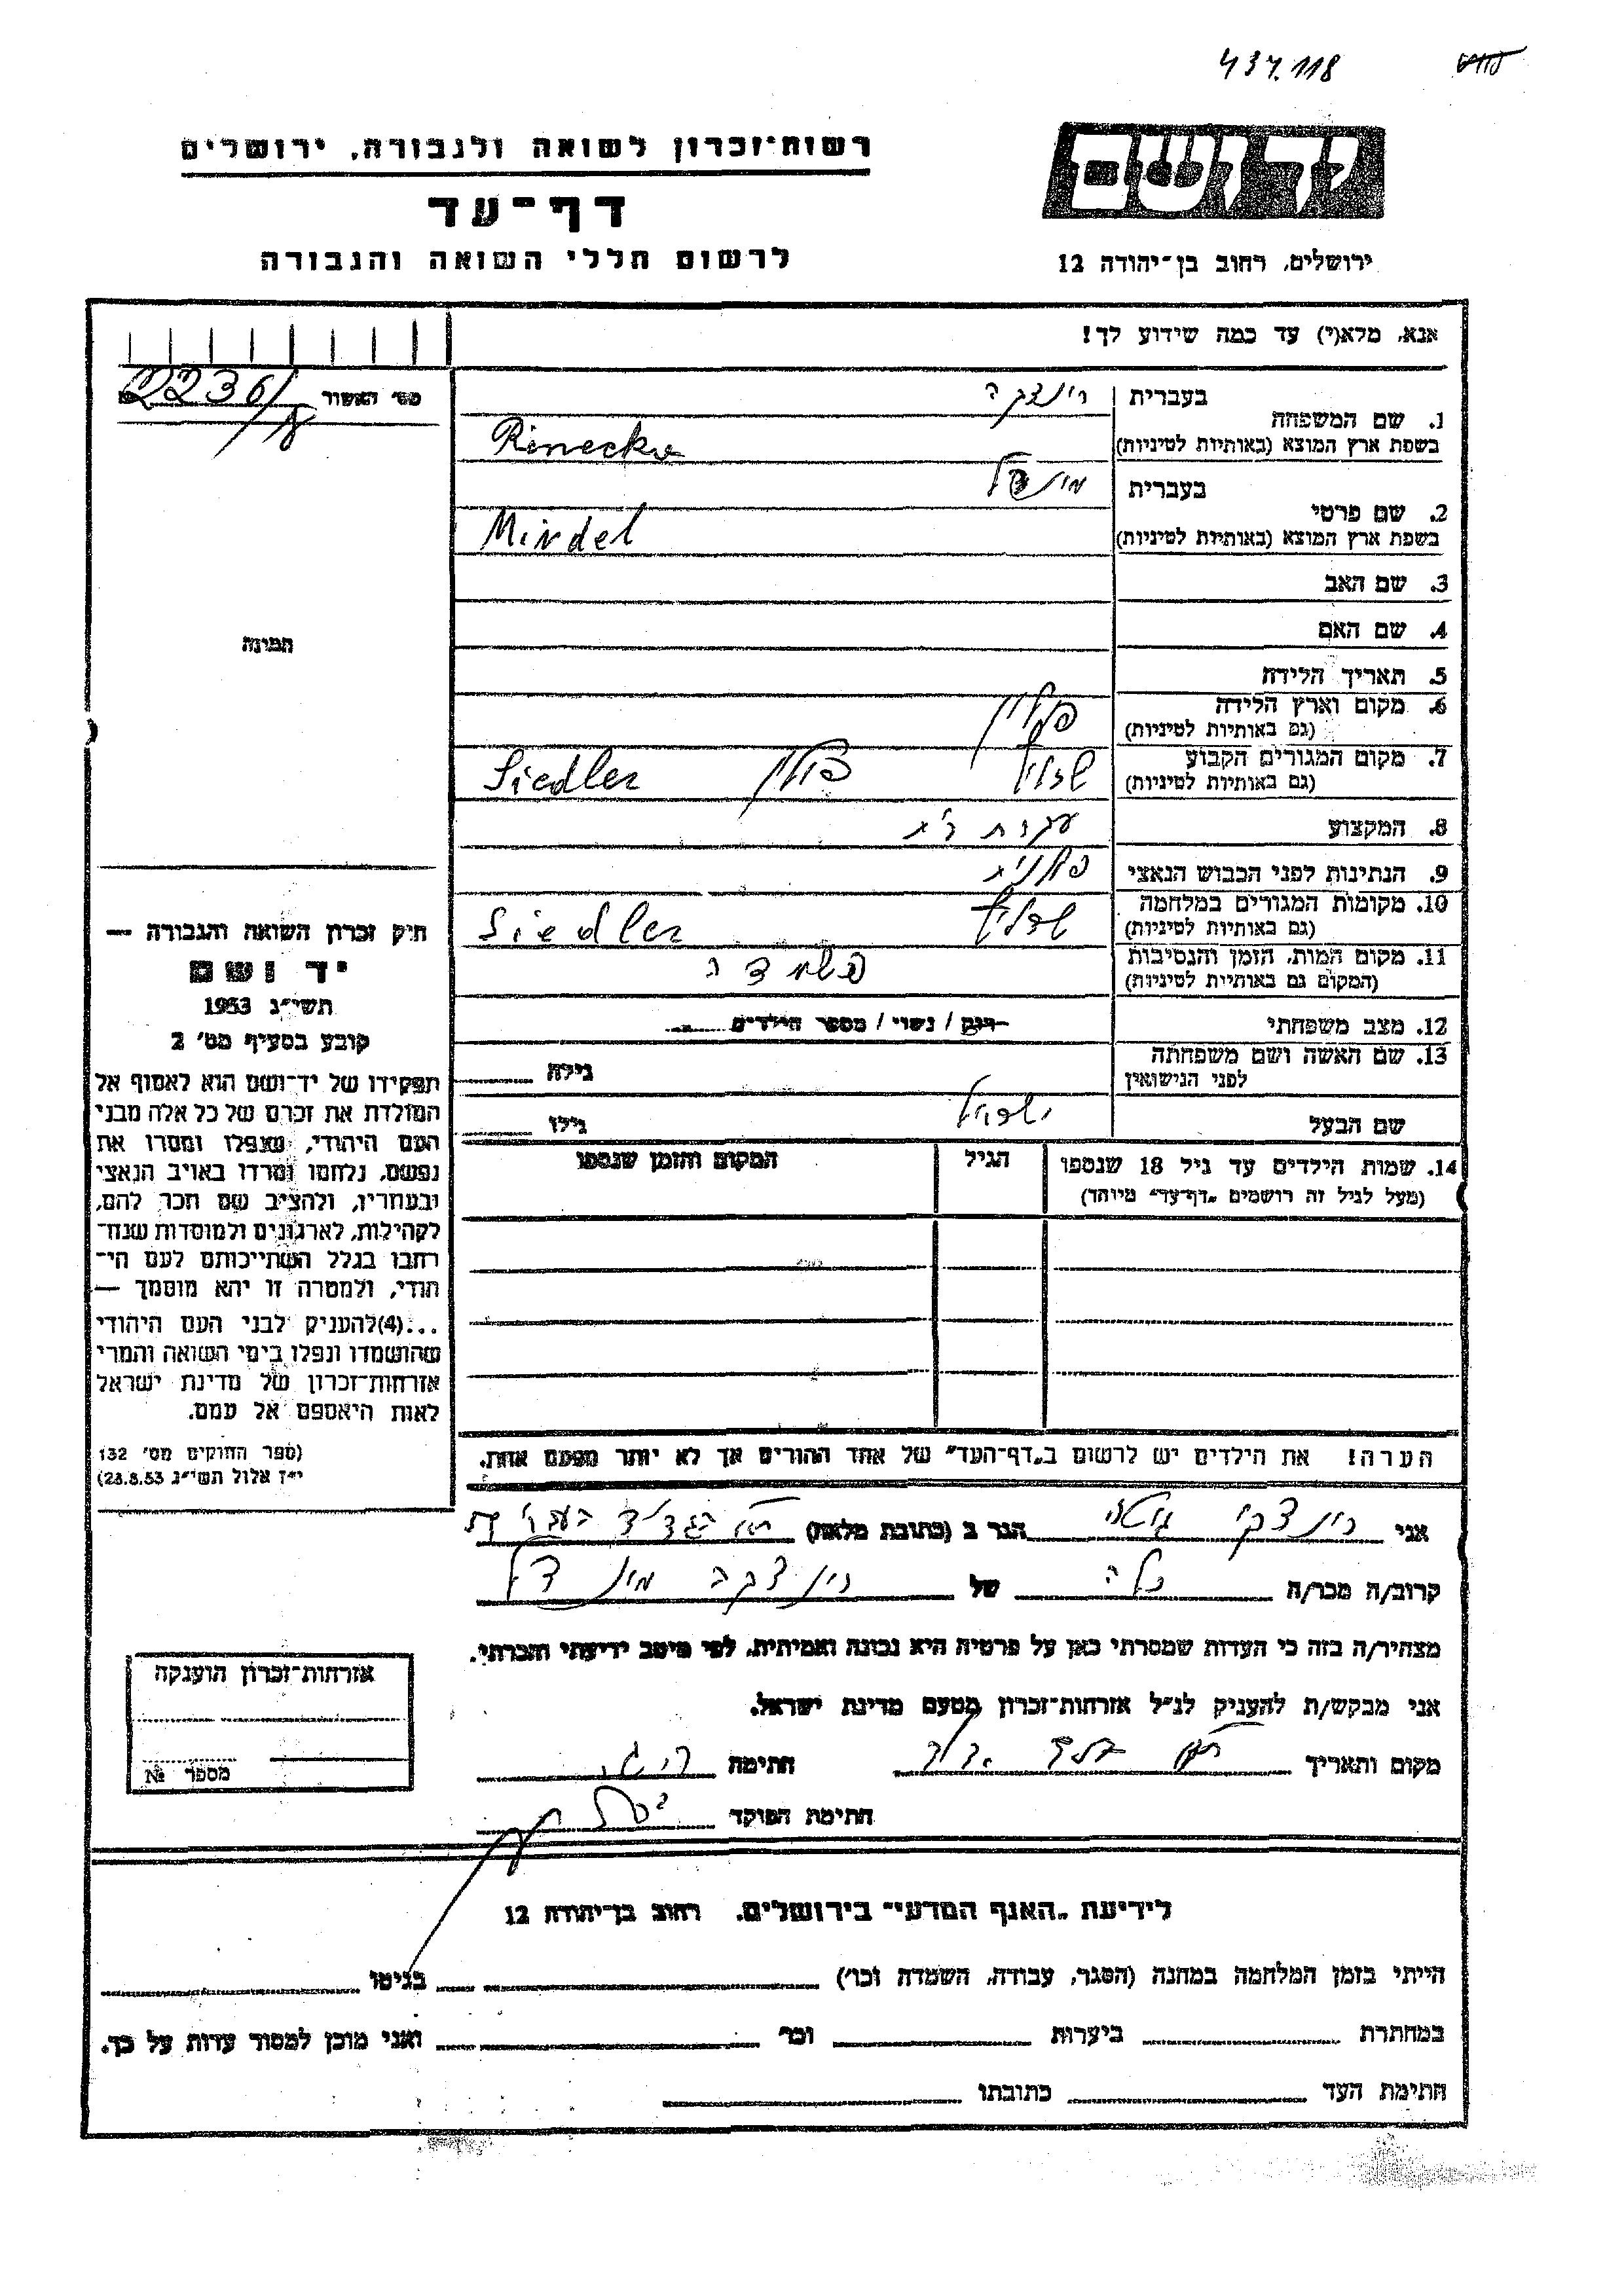 437.118
יד ושם
רשות־זכרון לשואה ולגבורה, ירושלים
דף־עד
לרשום חללי השואה והגבורה
ירושלים, רחוב בן־יהודה 12
אנא, מלא(י) עד כמה שידוע לך!
מס׳ האשור 2236/
1. שם המשפחה
בעברית רינצקה
בשפת ארץ המוצא (באותיות לטיניות) Rinecka
2. שם פרטי
בעברית מינדל
בשפת ארץ המוצא (באותיות לטיניות) Mindel
3. שם האב
4. שם האם
תמונה
5. תאריך הלידה
6. מקום וארץ הלידה
(גם באותיות לטיניות) פולין
7. מקום המגורים הקבוע
(גם באותיות לטיניות) פולין Siedlec
8. המקצוע עקרת בית
9. הנתינות לפני הכבוש הנאצי פולנית
10. מקומות המגורים במלחמה
(גם באותיות לטיניות) Siedlec
11. מקום המות, הזמן והנסיבות
(המקום גם באותיות לטיניות)
12. מצב משפחתי רווק / נשוי / מספר הילדים
13. שם האשה ושם משפחתה
לפני הנישואין גילה
שם הבעל גילו
14. שמות הילדים עד גיל 18 שנספו
(מעל לגיל זה רושמים „דף־עד״ מיוחד)
הגיל
המקום והזמן שנספו
חיק זכרון השואה והגבורה —
יד ושם
תשי״ג 1953
קובע בסעיף מס׳ 2
תפקידו של יד־ושם הוא לאסוף אל
המולדת את זכרם של כל אלה מבני
העם היהודי, שנפלו ומסרו את
נפשם, נלחמו ומרדו באויב הנאצי
ובעוזריו, ולהציב שם וזכר להם,
לקהילות, לארגונים ולמוסדות שנח־
רחבו בגלל השתייכותם לעם הי־
הודי, ולמטרה זו יהא מוסמך —
...(4)להעניק לבני העם היהודי
שהושמדו ונפלו בימי השואה והמרי
אזרחות־זכרון של מדינת ישראל
לאות היאספם אל עמם.
(ספר החוקים מס׳ 132
י״ז אלול תשי״ג 23.8.53)
הערה! את הילדים יש לרשום ב„דף־העד״ של אחד ההורים אך לא יותר מפעם אחת.
אני רינצקי גיטה הגר ב (כתובת מלאה)
קרוב/ה מכר/ה כלה של רינצקה מינדל
מצהיר/ה בזה כי העדות שמסרתי כאן על פרטיה היא נכונה ואמיתית, לפי מיטב ידיעתי והכרתי.
אני מבקש/ת להעניק לנ״ל אזרחות־זכרון מטעם מדינת ישראל.
מקום ותאריך חתימה
חתימת הפוקד
אזרחות־זכרון הוענקה
מספר №
לידיעת „האגף המדעי״ בירושלים, רחוב בן־יהודה 12
הייתי בזמן המלחמה במחנה (הסגר, עבודה, השמדה וכו׳) בגיטו
במחתרת ביערות וכו׳ ואני מוכן למסור עדות על כך.
חתימת העד כתובתו